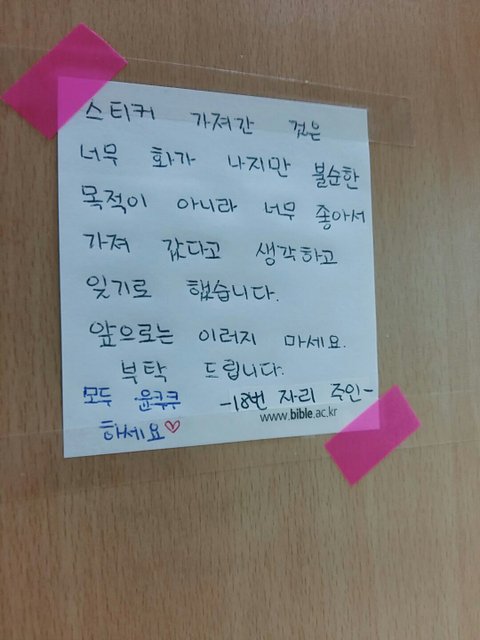 스티커 가져간 것은
너무 화가 나지만 불순한
목적이 아니라 너무 좋아서
가져 갔다고 생각하고
잊기로 했습니다.
앞으로는 이러지 마세요.
부탁 드립니다.
-18번 자리 주인-
모두 윤쿡쿡
하세요♡
www.bible.ac.kr